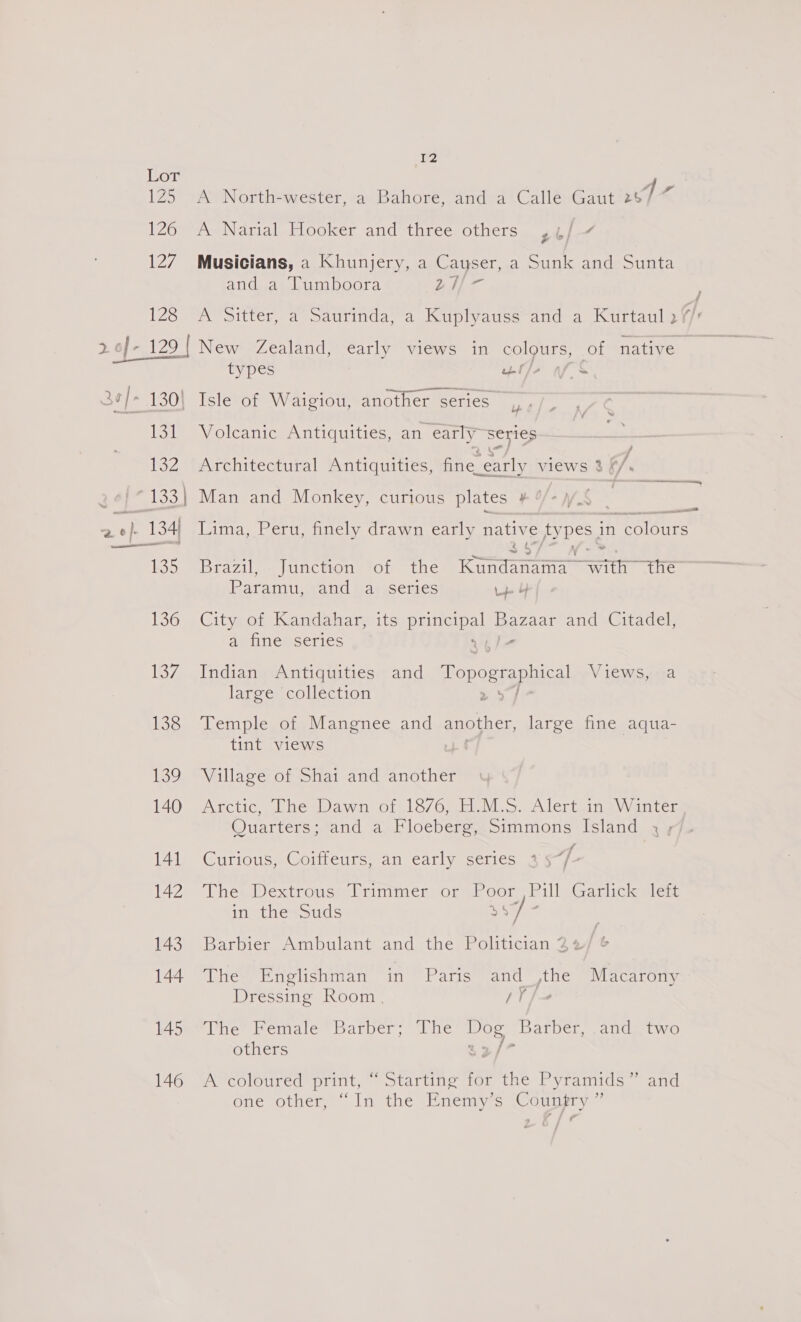 12
LOT
125 A North-wester, a Bahore, and a Calle Gaut
126 A Narial Hooker and three others
127 Musicians, a Khunjery, a Cayser, a Sunk and Sunta
and a Tumboora 27/-
128 A Sitter, a Saurinda, a Kuplyauss and a Kurtaul
129 New Zealand, early views in colours, of native
types
130 Isle of Waigiou, another series
131 Volcanic Antiquities, an early series
132 Architectural Antiquities, fine early views
133 Man and Monkey, curious plates
134 Lima, Peru, finely drawn early native types in colours
135 Brazil, Junction of the Kundanama with the
Paramu, and a series
136 City of Kandahar, its principal Bazaar and Citadel,
a fine series
137 Indian Antiquities and Topographical Views, a
large collection
138 Temple of Mangnee and another, large fine aqua-
tint views
139 Village of Shai and another
140 Arctic, The Dawn of 1876, H.M.S. Alert in Winter
Quarters; and a Floeberg, Simmons Island
141 Curious, Coiffeurs, an early series
142 The Dextrous Trimmer or Poor Pill Garlick left
in the Suds
143 Barbier Ambulant and the Politician
144 The Englishman in Paris and the Macarony
Dressing Room
145 The Female Barber; The Dog Barber, and two
others
146 A coloured print, “Starting for the Pyramids” and
one other, “In the Enemy's Country”